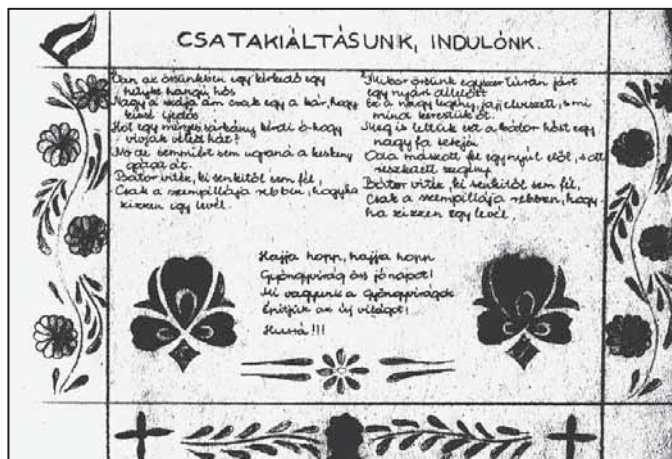 CSATAKIÁLTÁSUNK, INDULÓNK.
Van az őrsünkben egy kérkedő egy
hangú, hős
Nagy a szája ám csak egy a kár, hogy
kissé ijedős
Hol egy mérges sárkány kérdi ő hogy
vívjak véled hát?
No de semmiért sem ugraná a keskeny
át.
Bátor vitéz, ki senkitől sem fél,
Csak a szempillája rebben, hogyha
zizzen egy levél.
Mikor őrsünk egyszer túrán járt
egy nyári délelőtt
És a nagy legény, jajj elveszett, s mi
mind kerestük őt.
Meg is leltük ezt a bátor hőst egy
nagy fa tetején
Oda mászott fel egy nyúl elől, s ott
reszketett szegény.
Bátor vitéz, ki senkitől sem fél,
Csak a szempillája rebben, hogy-
ha zizzen egy levél.
Hajja hopp, hajja hopp
Gyöngyvirág őrs jó napot!
Mi vagyunk a Gyöngyvirágok
Építjük az új világot!
Hurrá!!!